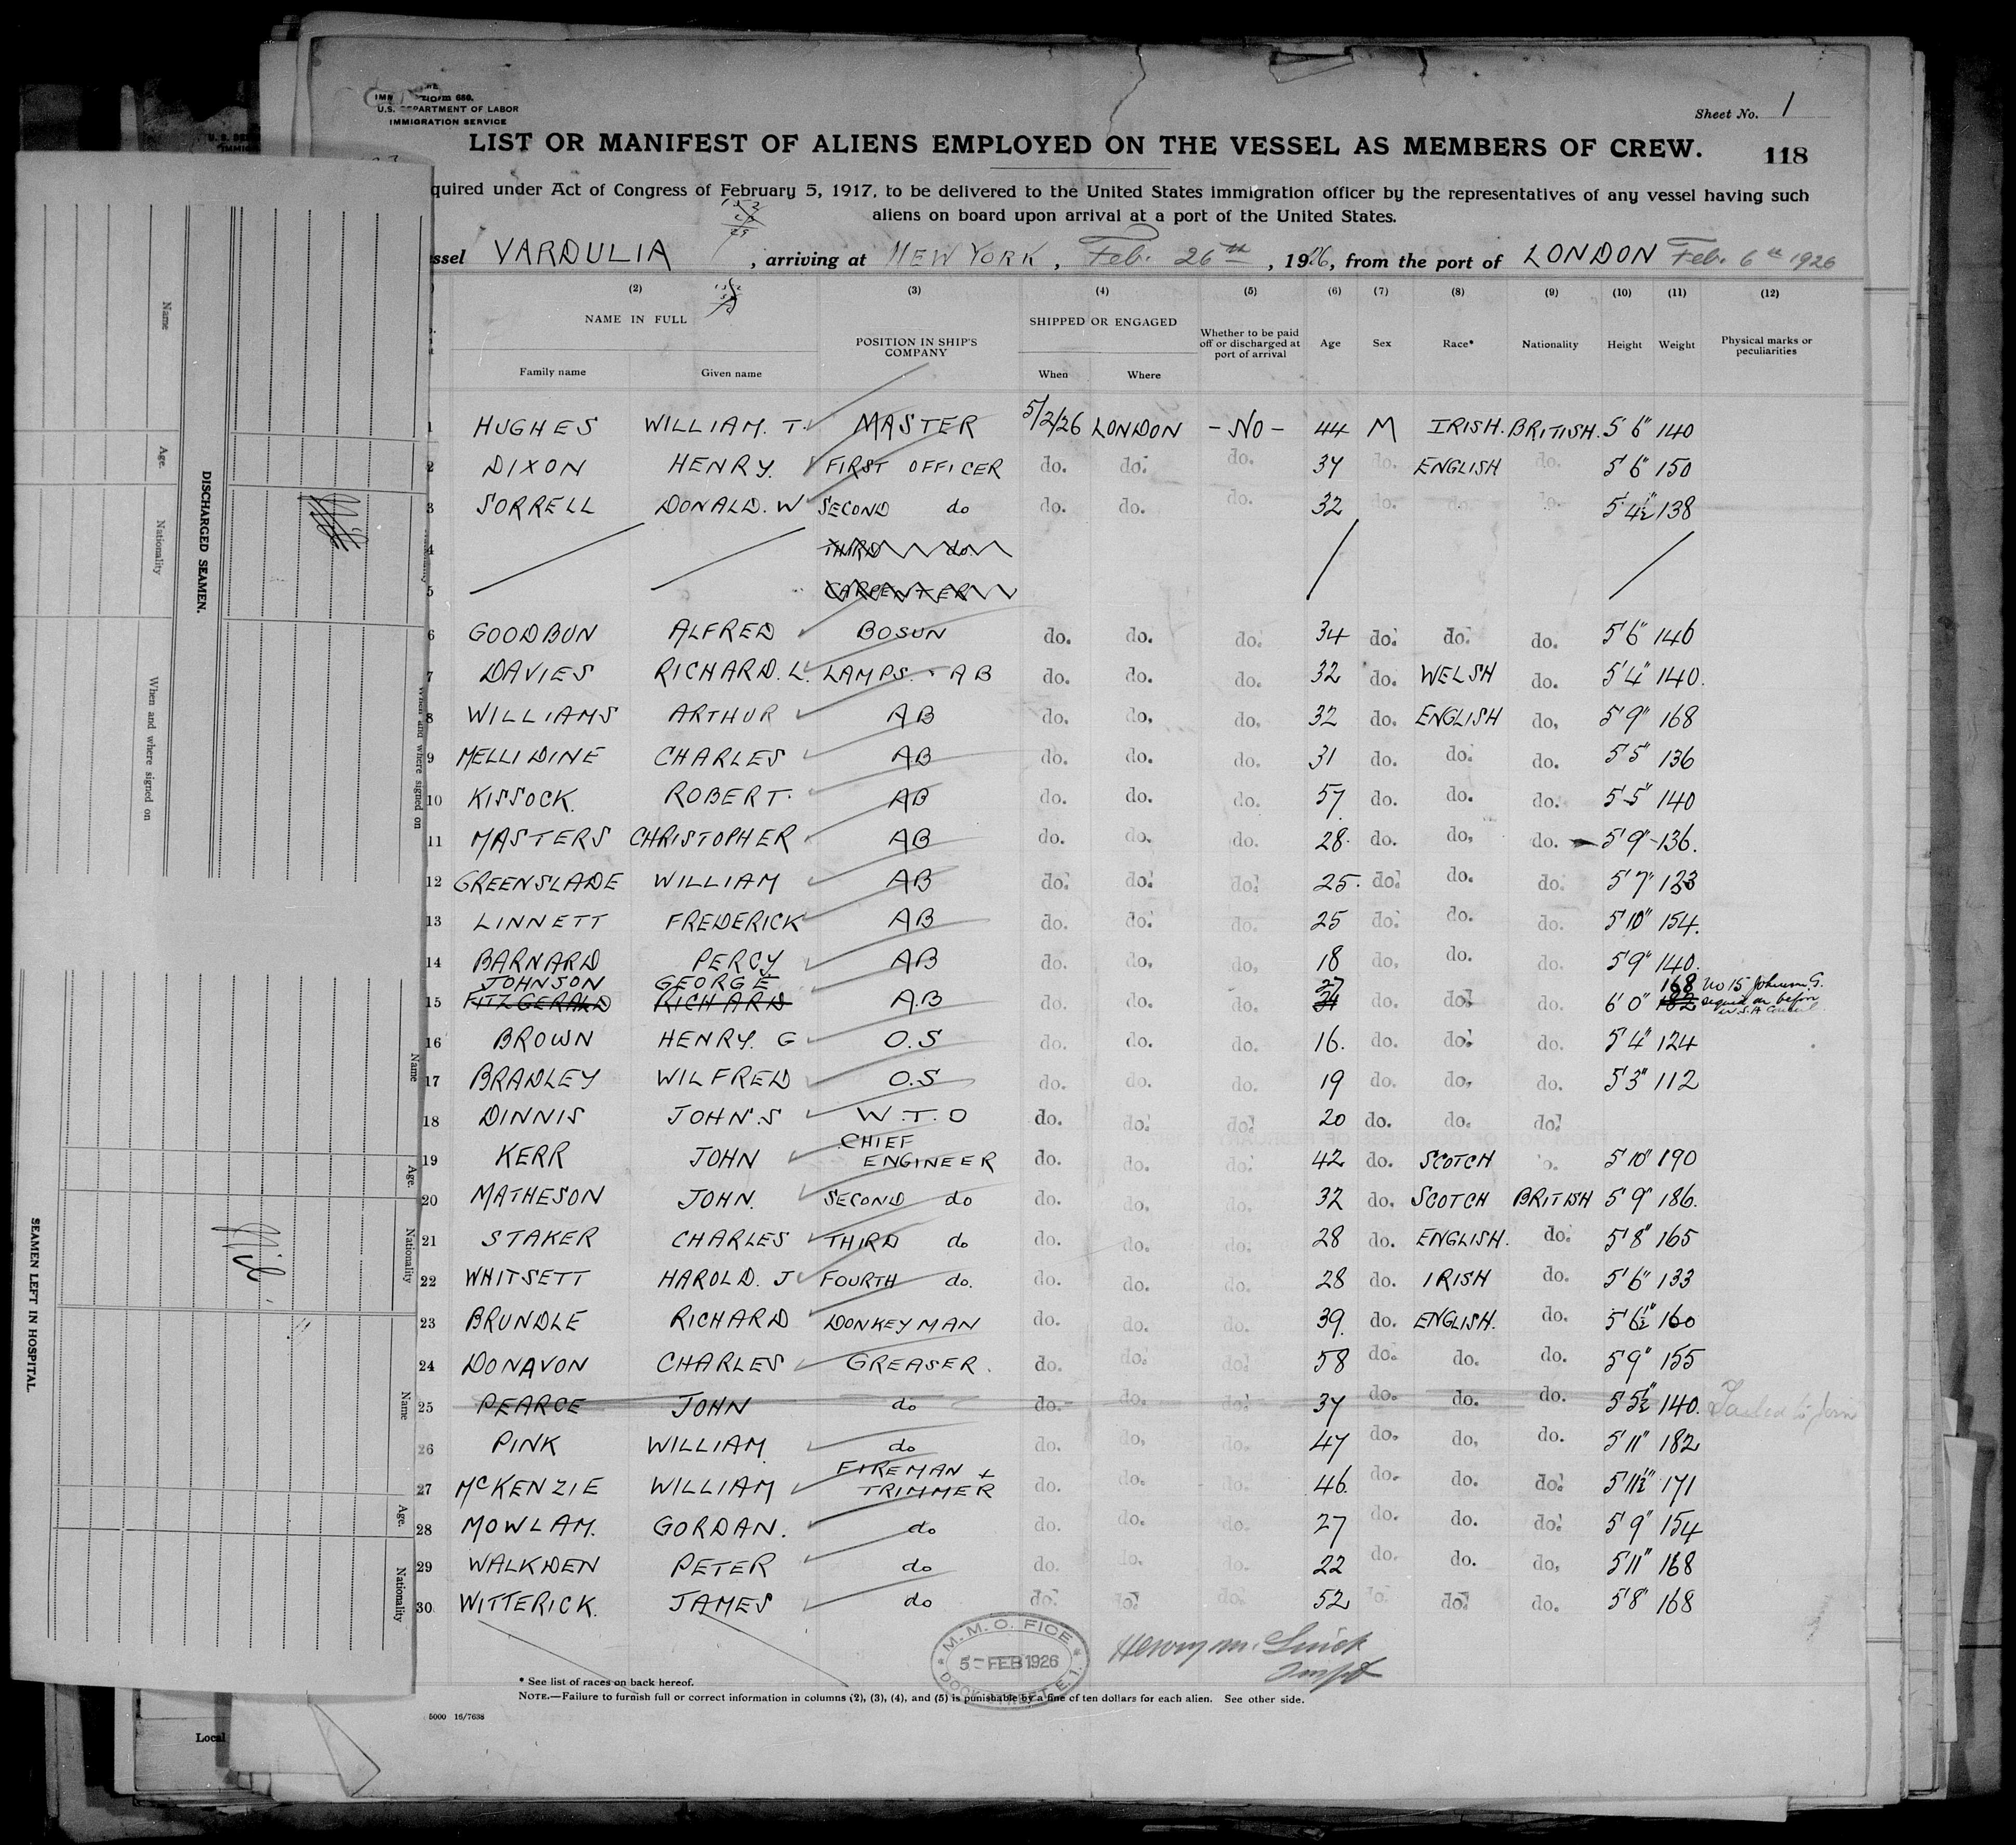 Form 680.
U.S. DEPARTMENT OF LABOR
IMMIGRATION SERVICE
Sheet No. 1
LIST OR MANIFEST OF ALIENS EMPLOYED ON THE VESSEL AS MEMBERS OF CREW.
118
quired under Act of Congress of February 5, 1917, to be delivered to the United States immigration officer by the representatives of any vessel having such
aliens on board upon arrival at a port of the United States.
ssel VARDULIA, arriving at NEW YORK, Feb. 26th, 1926, from the port of LONDON Feb. 6th 1926
(2) (3) (4) (5) (6) (7) (8) (9) (10) (11) (12)
NAME IN FULL
Family name Given name
POSITION IN SHIP'S COMPANY
SHIPPED OR ENGAGED
When Where
Whether to be paid off or discharged at port of arrival
Age Sex Race* Nationality Height Weight Physical marks or peculiarities
1 HUGHES WILLIAM. T. MASTER 5/2/26 LONDON - NO - 44 M IRISH. BRITISH. 5' 6" 140
2 DIXON HENRY. FIRST OFFICER do. do. do. 37 do. ENGLISH do. 5' 6" 150
3 SORRELL DONALD. W SECOND do do. do. do. 32 do. do. do. 5' 4½" 138
4 THIRD do.
5 CARPENTER
6 GOODBUN ALFRED BOSUN do. do. do. 34 do. do. do. 5' 6" 146
7 DAVIES RICHARD. L. LAMPS. - AB do. do. do. 32 do. WELSH do. 5' 4" 140.
8 WILLIAMS ARTHUR AB do. do. do. 32 do. ENGLISH do. 5' 9" 168
9 MELLIDINE CHARLES AB do. do. do. 31 do. do. do. 5' 5" 136
10 KISSOCK. ROBERT. AB do. do. do. 57 do. do. do. 5' 5" 140
11 MASTERS CHRISTOPHER AB do. do. do. 28. do. do. do. 5' 9" 136.
12 GREENSLADE WILLIAM AB do. do. do. 25. do. do. do. 5' 7" 133
13 LINNETT FREDERICK AB do. do. do. 25 do. do. do. 5' 10" 154.
14 BARNARD PERCY AB do. do. do. 18 do. do. do. 5' 9" 140.
JOHNSON GEORGE 27 168 No 15 Johnson G.
15 FITZGERALD RICHARD A.B do. do. do. do. do. do. 6' 0" 182 signed on before
U.S.A Consul.
16 BROWN HENRY. G O.S do. do. do. 16. do. do. do. 5' 4" 124
17 BRADLEY WILFRED O.S do. do. do. 19 do. do. do. 5' 3" 112
18 DINNIS JOHN.S W.T.O do. do. do. 20 do. do. do.
19 KERR JOHN CHIEF ENGINEER do. do. do. 42 do. SCOTCH do. 5' 10" 190
20 MATHESON JOHN. SECOND do do. do. do. 32 do. SCOTCH BRITISH 5' 9" 186.
21 STAKER CHARLES THIRD do do. do. do. 28 do. ENGLISH. do. 5' 8" 165
22 WHITSETT HAROLD. J FOURTH do. do. do. do. 28 do. IRISH do. 5' 6" 133
23 BRUNDLE RICHARD DONKEYMAN do. do. do. 39. do. ENGLISH. do. 5' 6½" 160
24 DONAVON CHARLES GREASER. do. do. do. 58 do. do. do. 5' 9" 155
25 PEARCE JOHN do do. do. do. 37 do. do. do. 5' 5½" 140. Failed to join
26 PINK WILLIAM. do do. do. do. 47 do. do. do. 5' 11" 182
27 McKENZIE WILLIAM FIREMAN + TRIMMER do. do. do. 46. do. do. do. 5' 11½" 171
28 MOWLAM. GORDAN. do do. do. do. 27 do. do. do. 5' 9" 154
29 WALKDEN PETER do do. do. do. 22 do. do. do. 5' 11" 168
30 WITTERICK. JAMES do do. do. do. 52 do. do. do. 5' 8" 168
M.M.O. FICE
5 - FEB 1926
DOCK STREET. E.1.
Henry M.
* See list of races on back hereof.
NOTE.—Failure to furnish full or correct information in columns (2), (3), (4), and (5) is punishable by a fine of ten dollars for each alien. See other side.
5000 16/7638
Local
DISCHARGED SEAMEN.
Name
Age.
Nationality
When and where signed on
When and where signed on
SEAMEN LEFT IN HOSPITAL
Name
Age.
Nationality
Nil
Name
Age.
Nationality